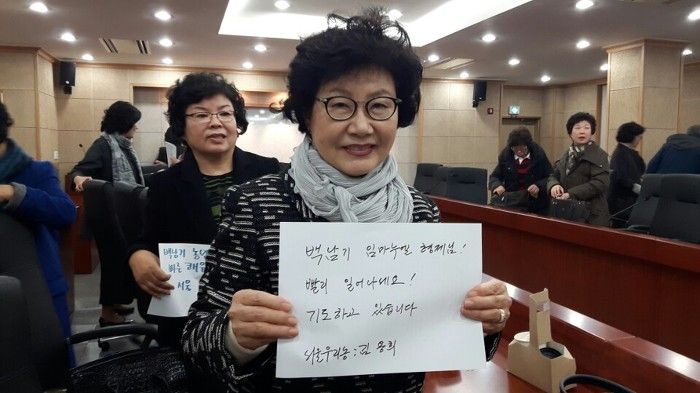 백남기 임마누엘 형제님!
빨리 일어나세요!
기도하고 있습니다
서울우리농 : 김 용희
백남기 농
빠른
서울